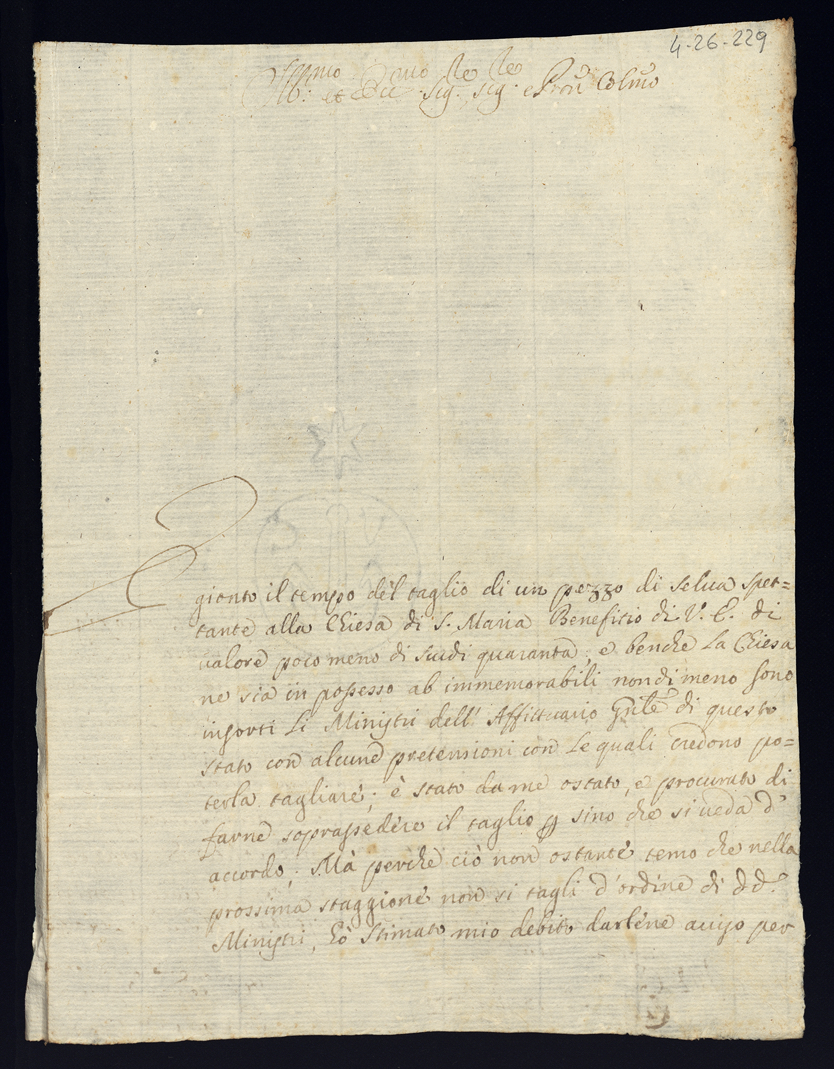 4-26-229
Sig.re Sig.re e Pron Colmo
gionto il tempo del taglio di un pezzo di selua spet=
tante alla Chiesa di S. Maria Beneficio di V. E. di
ualore poco meno di scudi quaranta; e benche la Chiesa
ne sia in possesso ab immemorabili nondimeno sono
insorti li Ministri dell' Affittuario Gnle di questo
stato con alcune pretensioni con le quali credono po=
terla tagliare; è stato da me ostato, e procurato di
farne soprassedere il taglio sino che si ueda d'
accordo; Mà perche ciò non ostante temo che nella
prossima staggione non si tagli d'ordine di dd.i
Ministri, hò stimato mio debito darlene auiso per